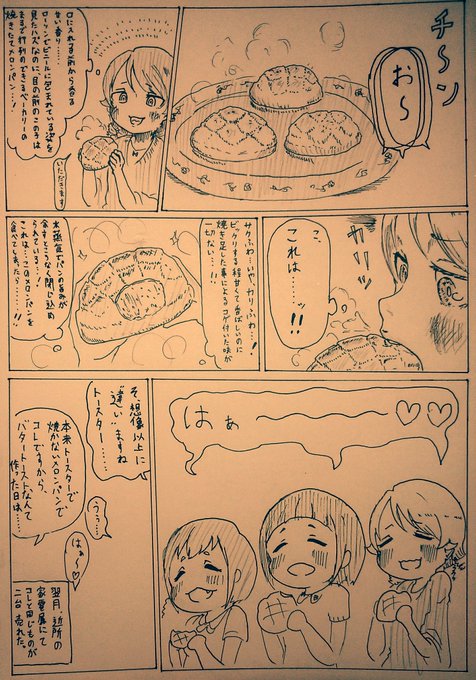 チ〜ン
お〜
口に入れる前から香る
甘い香り……
ローソンでビニールに包まれている姿を
見たハズなのに、目の前のこの子は
まるで行列のできるベーカリーの
焼きたてメロンパン…!
いただきます
カリッ
こ、
これは……ッ!!
サクふわ…いや、カリふわ…!
ビックリする程甘くて香ばしいのに
焼き足した事によるコゲ付いた味が
一切ない…!!
水蒸気でパンの旨みが
余すとこなく閉じ込め
られている…!
これは…このメロンパンを
食べてしまったら……!!
はぁ〜〜♡♡
そ、想像以上に
"違い"ますね
トースター……
本来トースターで
焼かないメロンパンで
コレですから、
バタートーストなんて
作った日は…
うっ…
はぁ〜♡
翌月、近所の
家電屋にて
コレと同じものが
二台 売れた。